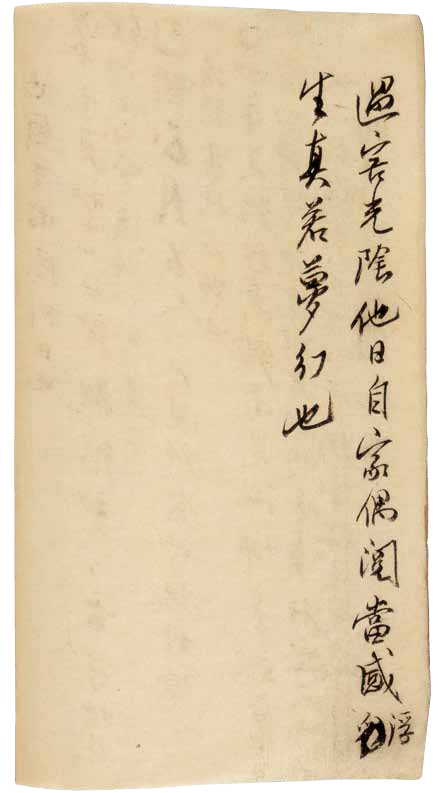 過客光陰他日自家偶閱當感浮
生真若夢幻也